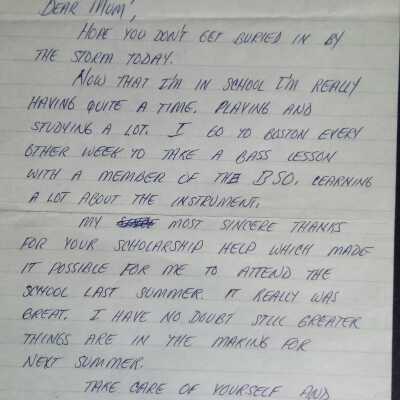 DEAR MUM!,
HOPE YOU DON'T GET BURIED IN BY
THE STORM TODAY.
NOW THAT I'M IN SCHOOL I'M REALLY
HAVING QUITE A TIME. PLAYING AND
STUDYING A LOT. I GO TO BOSTON EVERY
OTHER WEEK TO TAKE A BASS LESSON
WITH A MEMBER OF THE BSO. LEARNING
A LOT ABOUT THE INSTRUMENT.
MY MOST SINCERE THANKS
FOR YOUR SCHOLARSHIP HELP WHICH MADE
IT POSSIBLE FOR ME TO ATTEND THE
SCHOOL LAST SUMMER. IT REALLY WAS
GREAT. I HAVE NO DOUBT STILL GREATER
THINGS ARE IN THE MAKING FOR
NEXT SUMMER.
TAKE CARE OF YOURSELF AND